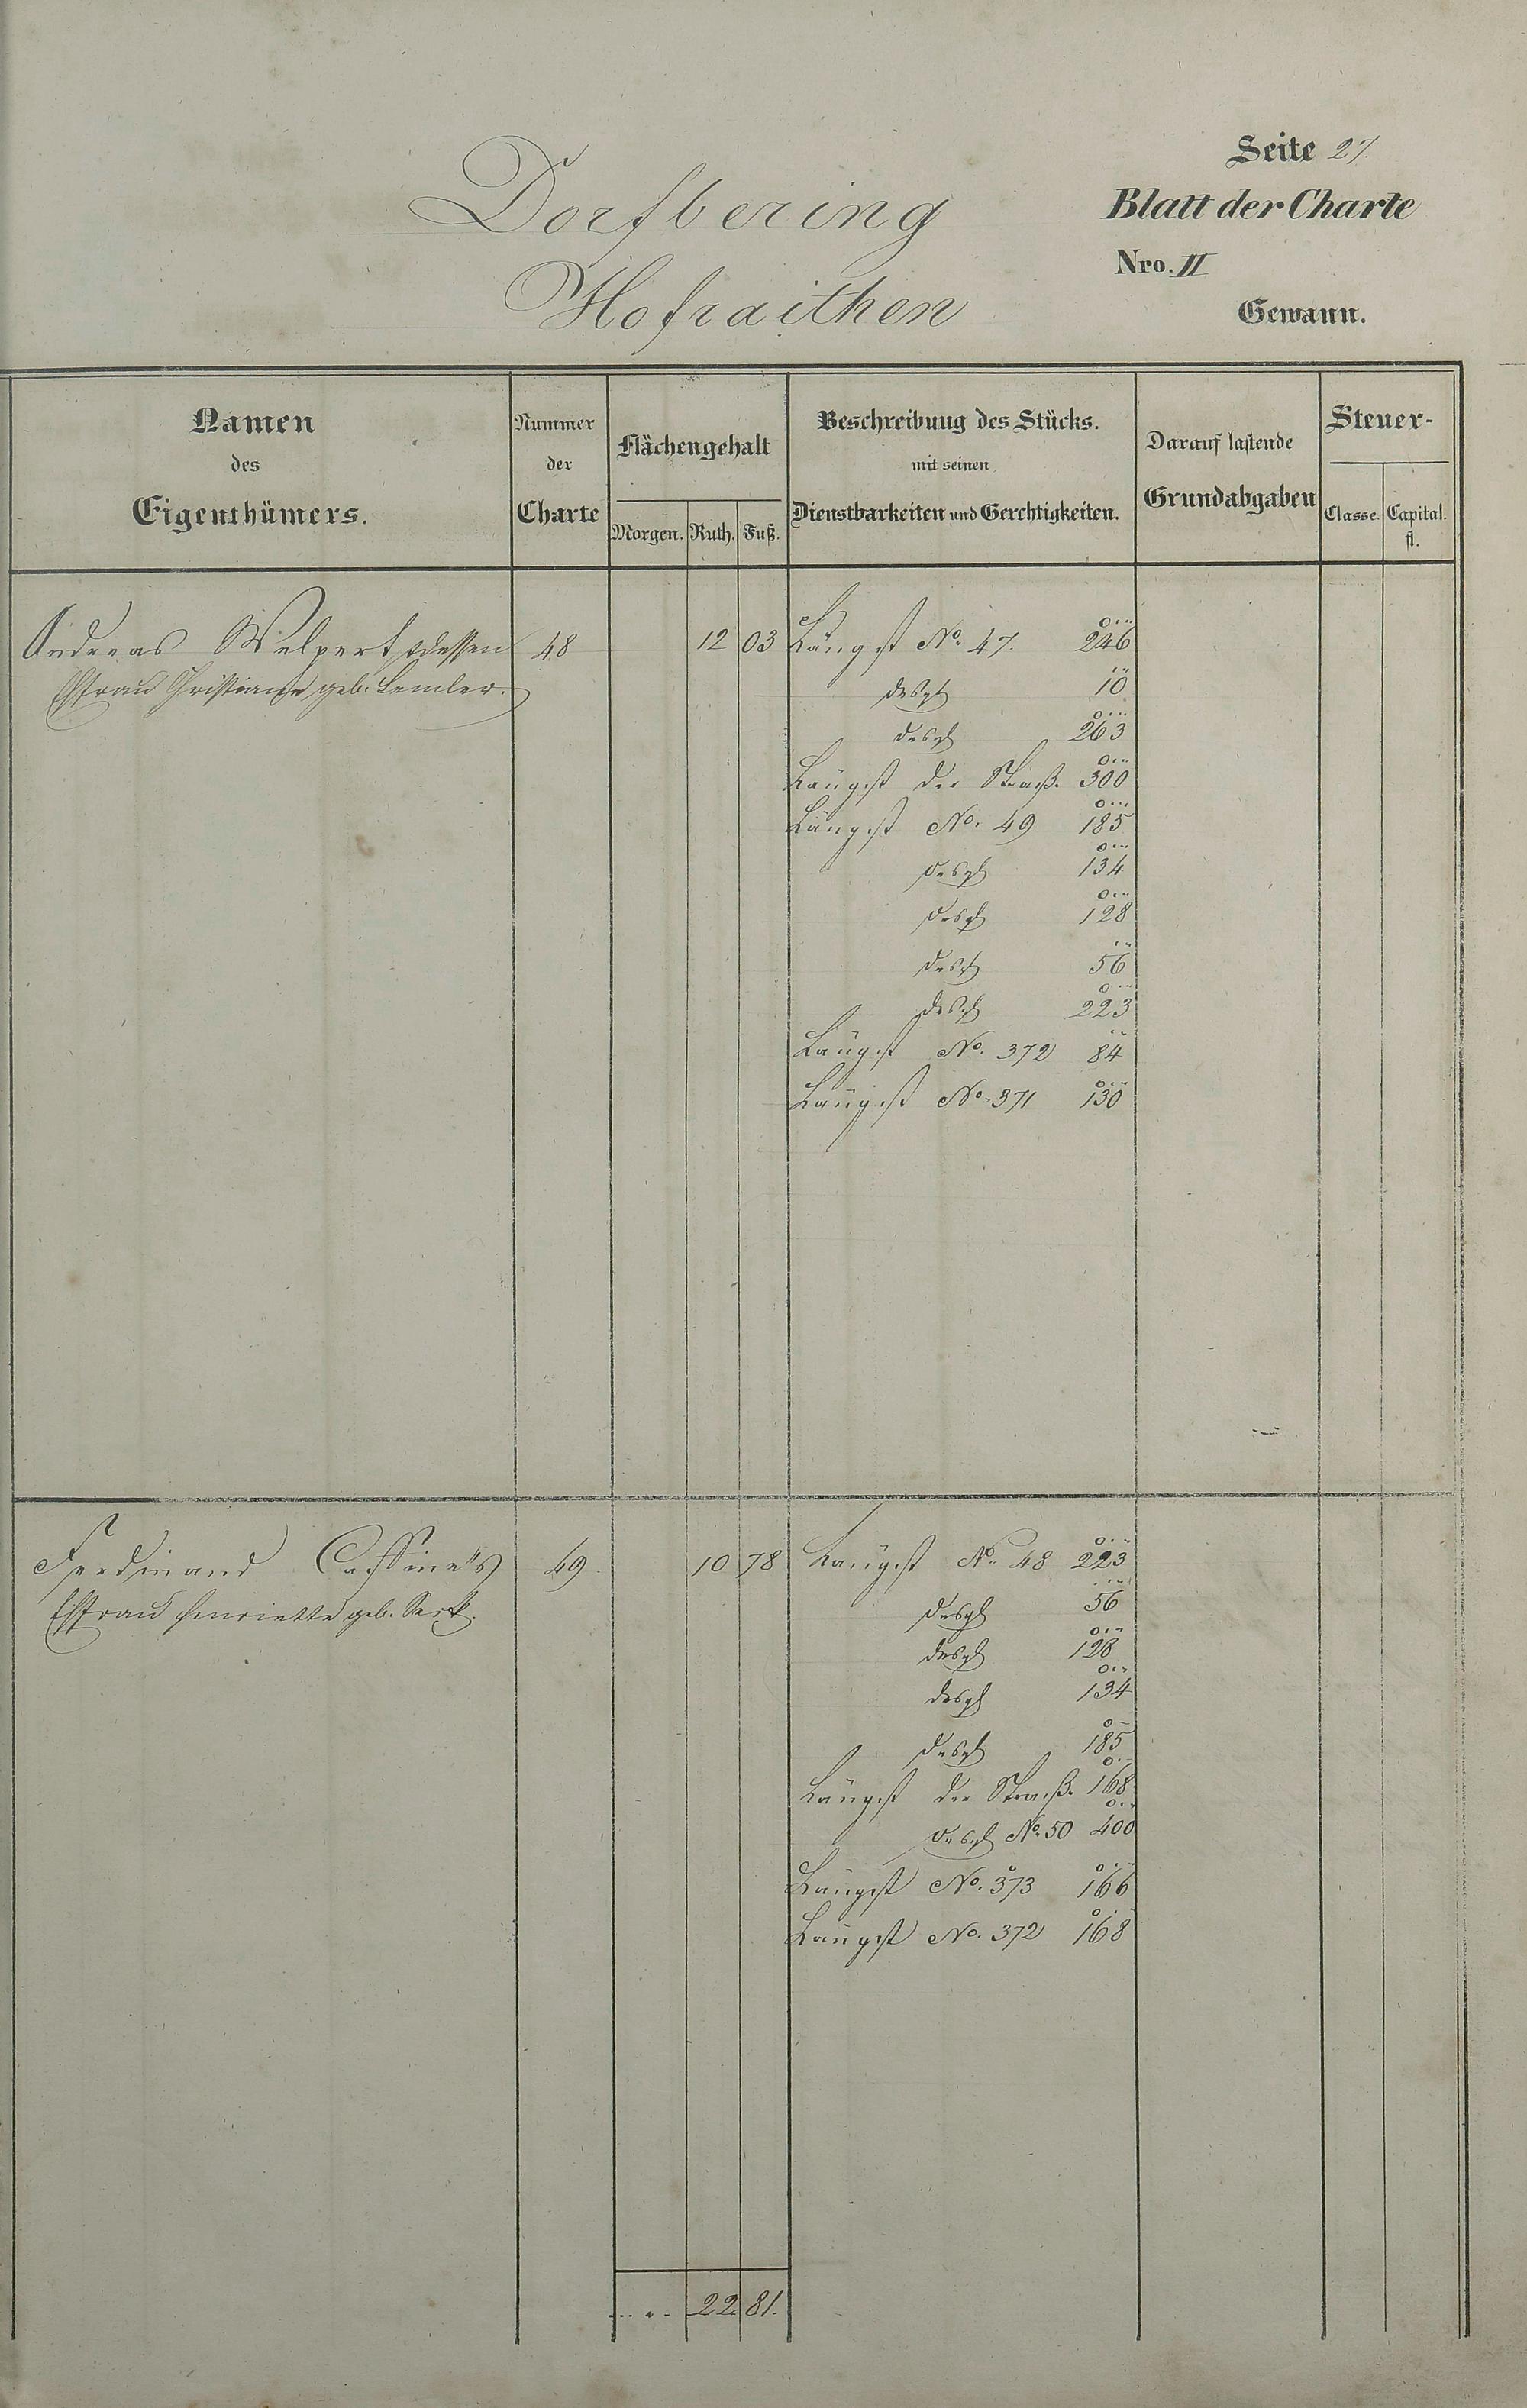 Seite 27.
Dorfbering
Blatt der Charte
Nro. II
Hofraithen
Gewann.
Namen des Eigenthümers.
Nummer der Charte
Flächengehalt
Morgen. Ruth. Fuß.
Beschreibung des Stücks. mit seinen Dienstbarkeiten und Gerechtigkeiten.
Darauf lastende Grundabgaben
Steuer-
Classe. Capital. fl.
Andreas Welpert dessen 48 12 03 Längst No. 47. 246
Ehfrau Christiane geb. Lemler. desgl 10
desgl 263
Längst der Straß. 300
Längst No. 49 185
desgl 134
desgl 128
desgl 56
desgl 223
Längst No. 372 84
Längst No. 371 130
Ferdinand 49. 10 78 Längst No 48 223
Ehfrau Henriette geb. desgl 56
desgl 128
desgl 134
desgl 185
Längst der Straß. 168
desgl No. 50 400
Längst No. 373 166
Längst No. 372 168
22 81.